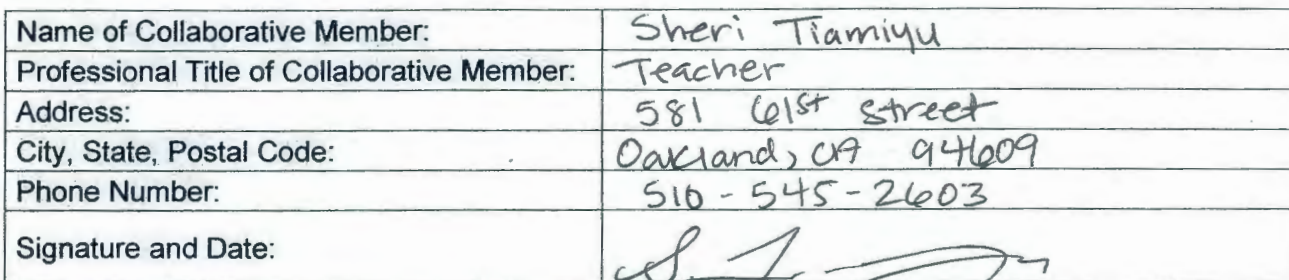 Name of Collaborative Member: Sheri Tiamiyu
Professional Title of Collaborative Member: Teacher
Address: 581 61st Street
City, State, Postal Code: Oakland, CA 94609
Phone Number: 510-545-2603
Signature and Date: